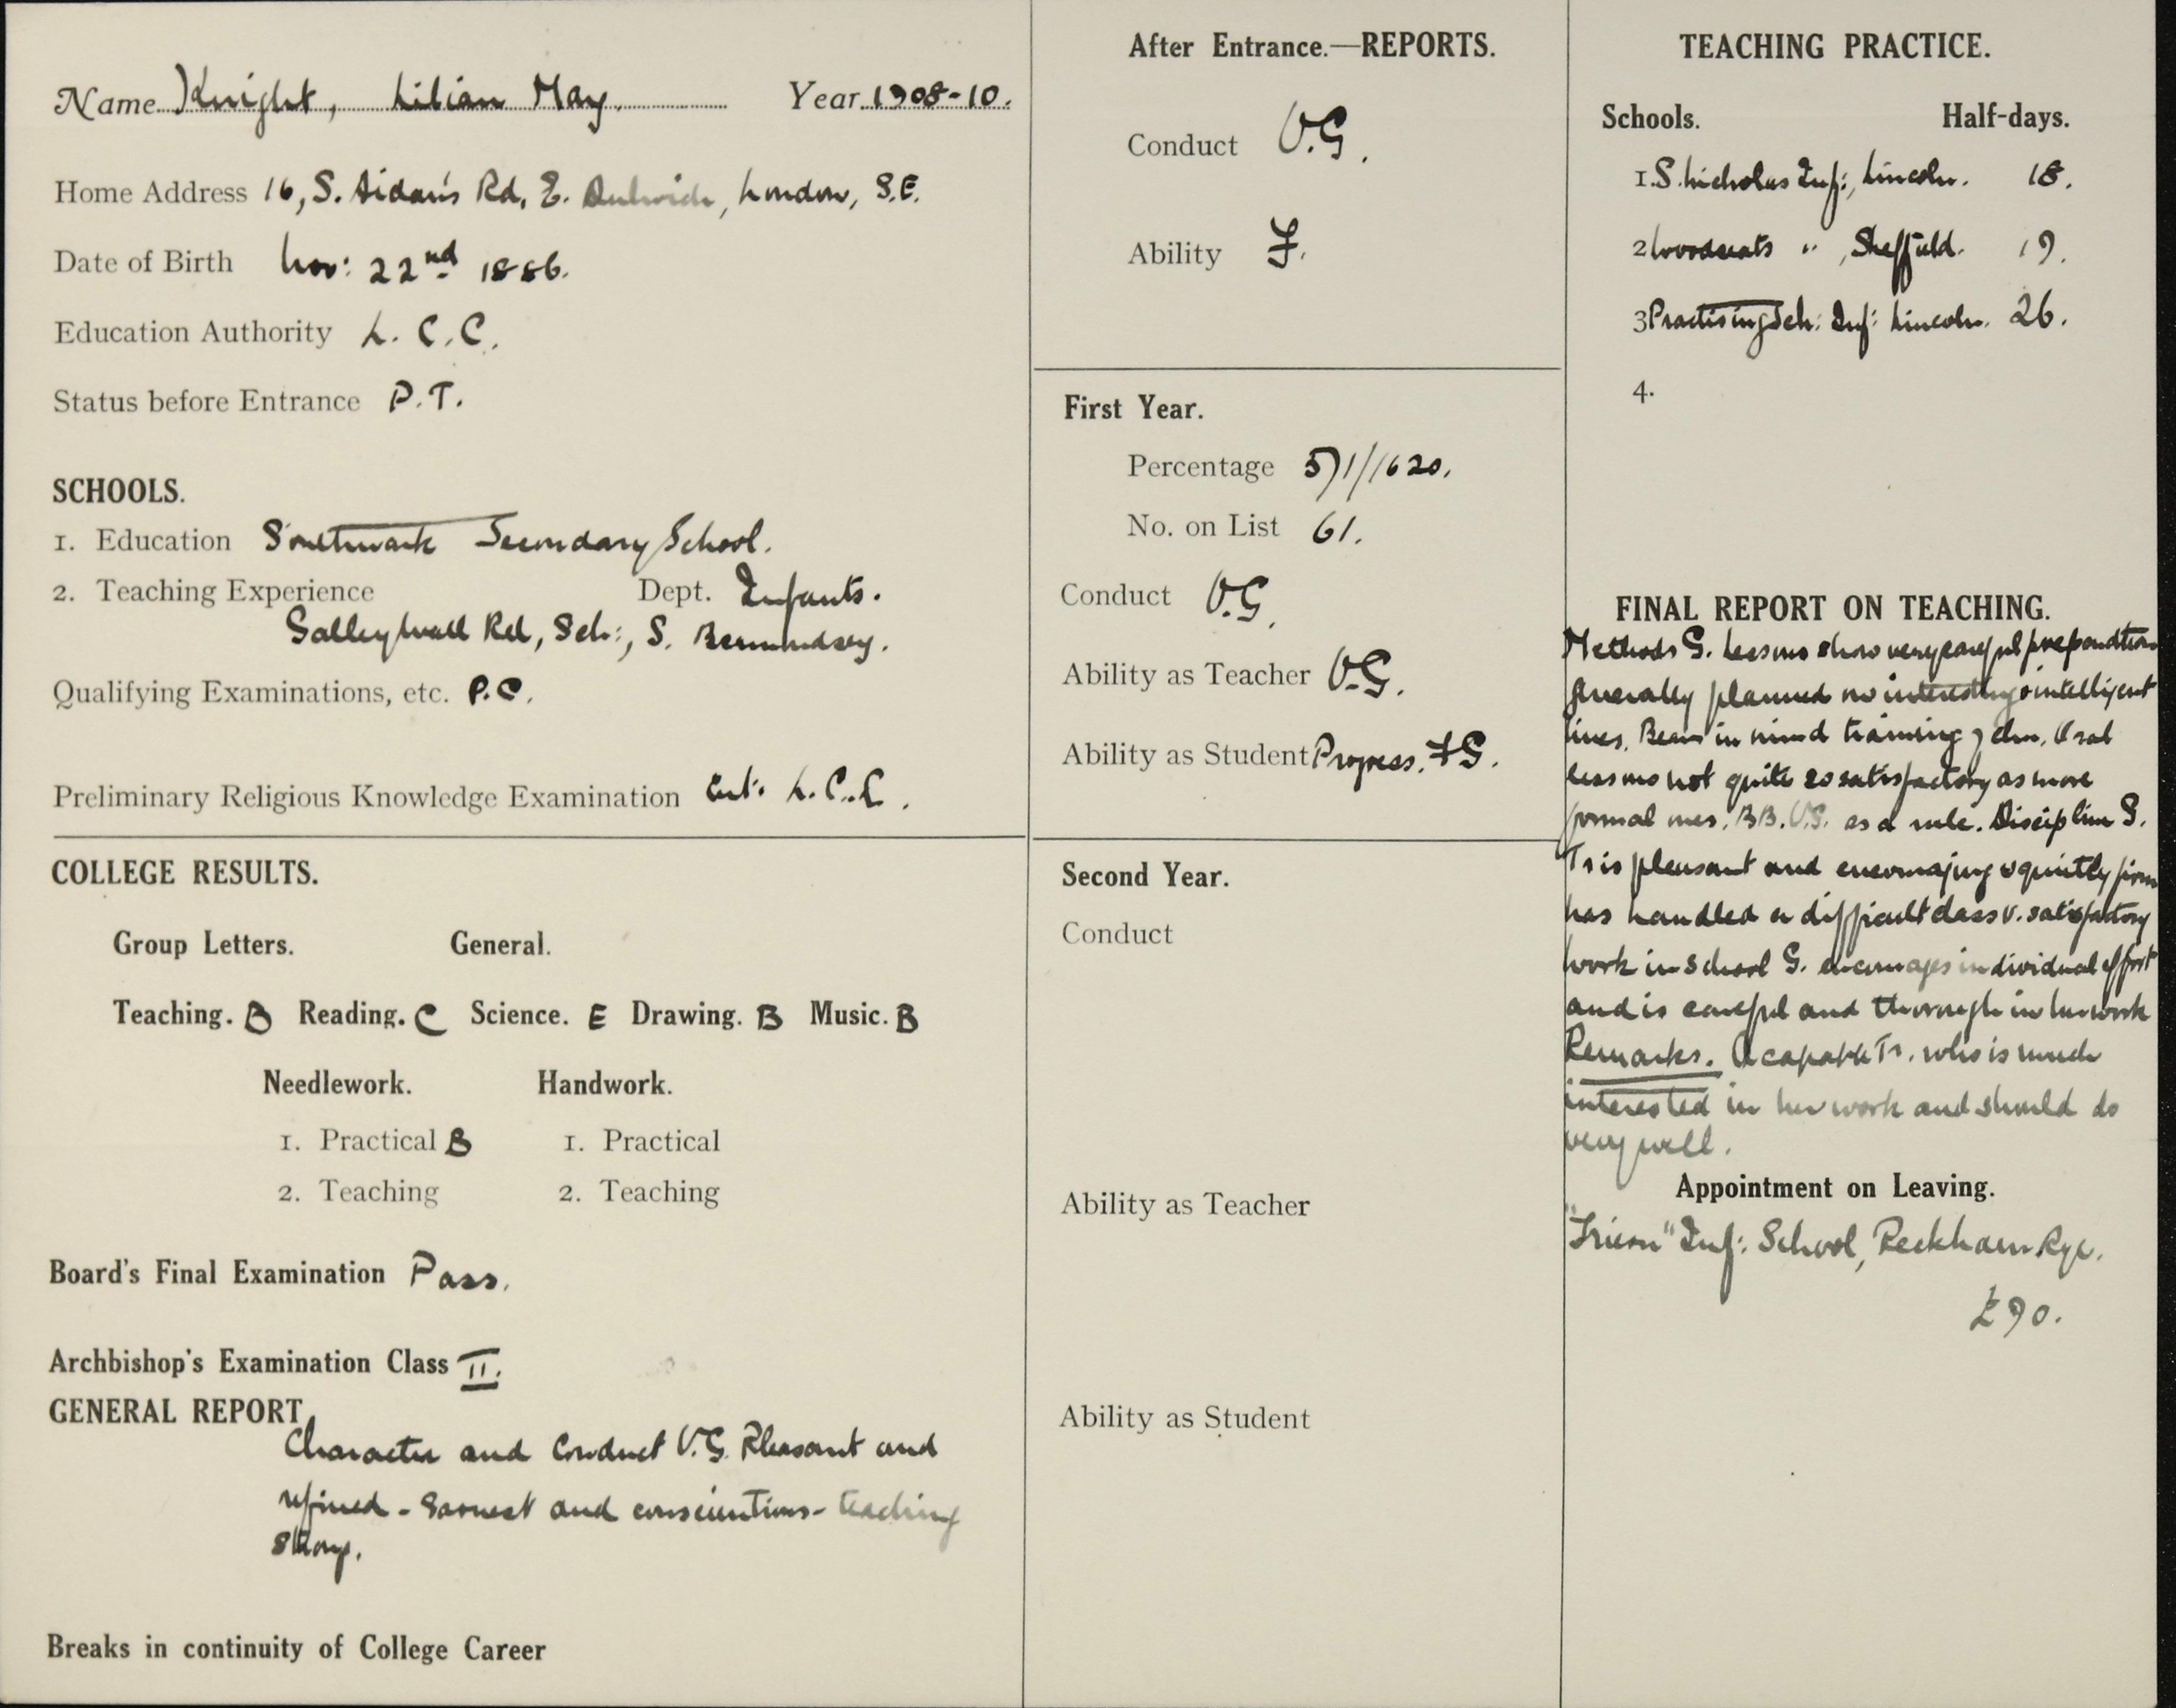 Name Knight, Lilian May. Year 1908-10.
Home Address 16, S. Aidan's Rd, E. Dulwich, London, S.E.
Date of Birth Nov: 22nd 1886.
Education Authority L. C. C.
Status before Entrance P.T.
SCHOOLS.
1. Education Southwark Secondary School.
2. Teaching Experience Dept. Infants.
Galleywall Rd, Sch:, S. Bermondsey.
Qualifying Examinations, etc. P.C.
Preliminary Religious Knowledge Examination L.C.C.
COLLEGE RESULTS.
Group Letters. General.
Teaching. B Reading. C Science. E Drawing. B Music. B
Needlework. Handwork.
1. Practical B 1. Practical
2. Teaching 2. Teaching
Board's Final Examination Pass.
Archbishop's Examination Class II.
GENERAL REPORT
Character and Conduct V.G. Pleasant and
refined - Earnest and conscientious - teaching
strong.
Breaks in continuity of College Career
After Entrance.—REPORTS.
Conduct V.G.
Ability F.
First Year.
Percentage 971/1620.
No. on List 61.
Conduct V.G.
Ability as Teacher V.G.
Ability as Student Progress. FG.
Second Year.
Conduct
Ability as Teacher
Ability as Student
TEACHING PRACTICE.
Schools. Half-days.
1. S. Nicholas Inf:, Lincoln. 18.
2 Woodseats " , Sheffield. 19.
3 Practising Sch: Inf: Lincoln. 26.
4.
FINAL REPORT ON TEACHING.
Methods G. Lessons show very careful preparation
generally planned on interesting & intelligent
lines. Bears in mind training of chn. Oral
lessons not quite so satisfactory as more
formal ones. BB. V.G. as a rule. Discipline G.
Tr is pleasant and encouraging & quietly firm
has handled a difficult class v. satisfactory
work in school G. encourages individual effort
and is careful and thorough in her work
Remarks. A capable Tr. who is much
interested in her work and should do
very well.
Appointment on Leaving.
"Friern" Inf: School, Peckham Rye.
£90.